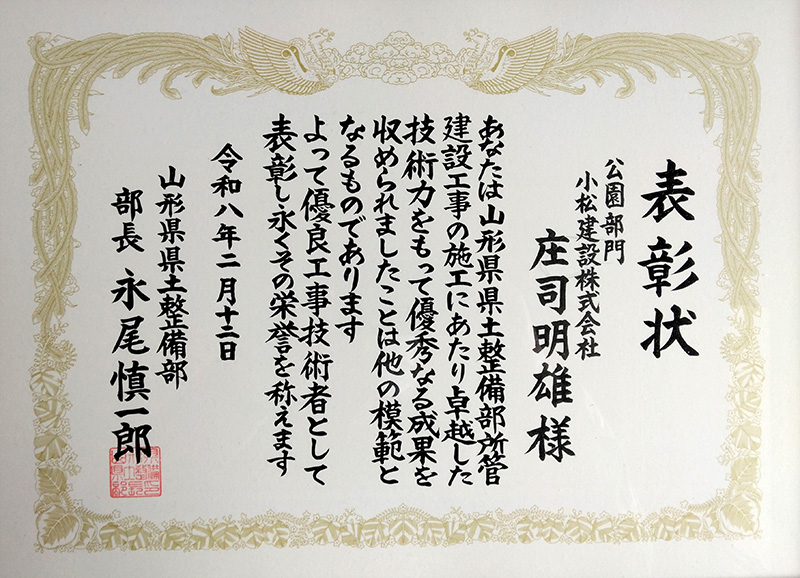 表彰状
公園部門
小松建設株式会社
庄司明雄様
あなたは山形県県土整備部所管
建設工事の施工にあたり卓越した
技術力をもって優秀なる成果を
収められましたことは他の模範と
なるものであります
よって優良工事技術者として
表彰し永くその栄誉を称えます
令和八年二月十二日
山形県県土整備部
部長 永尾慎一郎